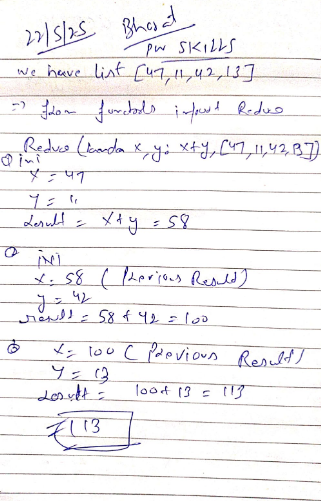 22/5/25 Bharat
PW SKILLS
we have list [47, 11, 42, 13]
=> from functools import Reduce
Reduce (lambda x, y: x+y, [47, 11, 42, 13])
① ini
x = 47
y = 11
result = x+y = 58
② ini
x: 58 ( Previous Result)
y = 42
result = 58 + 42 = 100
③ x = 100 ( Previous Result)
y = 13
result = 100 + 13 = 113
113